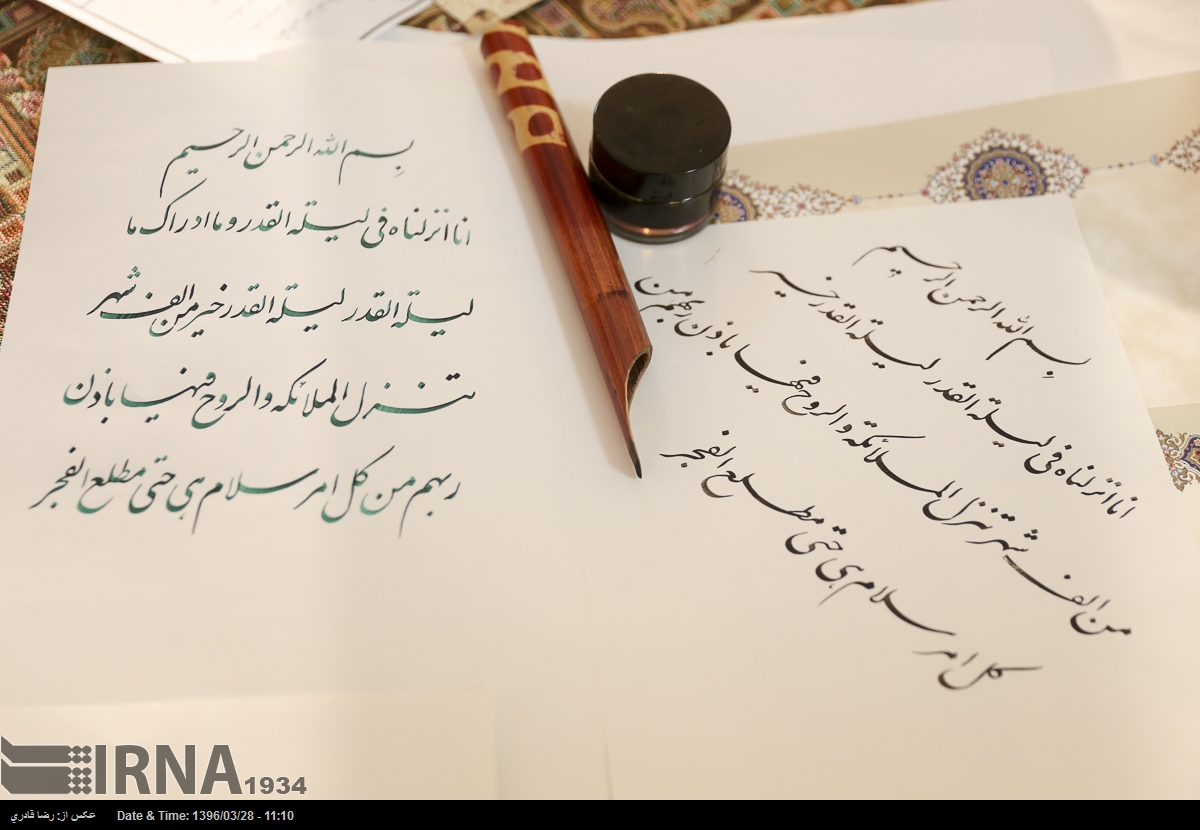 بِسم الله الرحمن الرحیم
انا انزلناه فی لیلة القدر و ما ادراک ما
لیلة القدر لیلة القدر خیر من الف شهر
تنزل الملائکه والروح فیها باذن
ربهم من کل امر سلام هی حتی مطلع الفجر
بِسم الله الرحمن الرحیم
انا انزلناه فی لیلة القدر لیلة القدر خیر
من الف شهر تنزل الملائکة والروح فیها باذن ربهم من
کل امر سلام هی حتی مطلع الفجر
IRNA 1934
عکس از: رضا قادري Date & Time: 1396/03/28 - 11:10